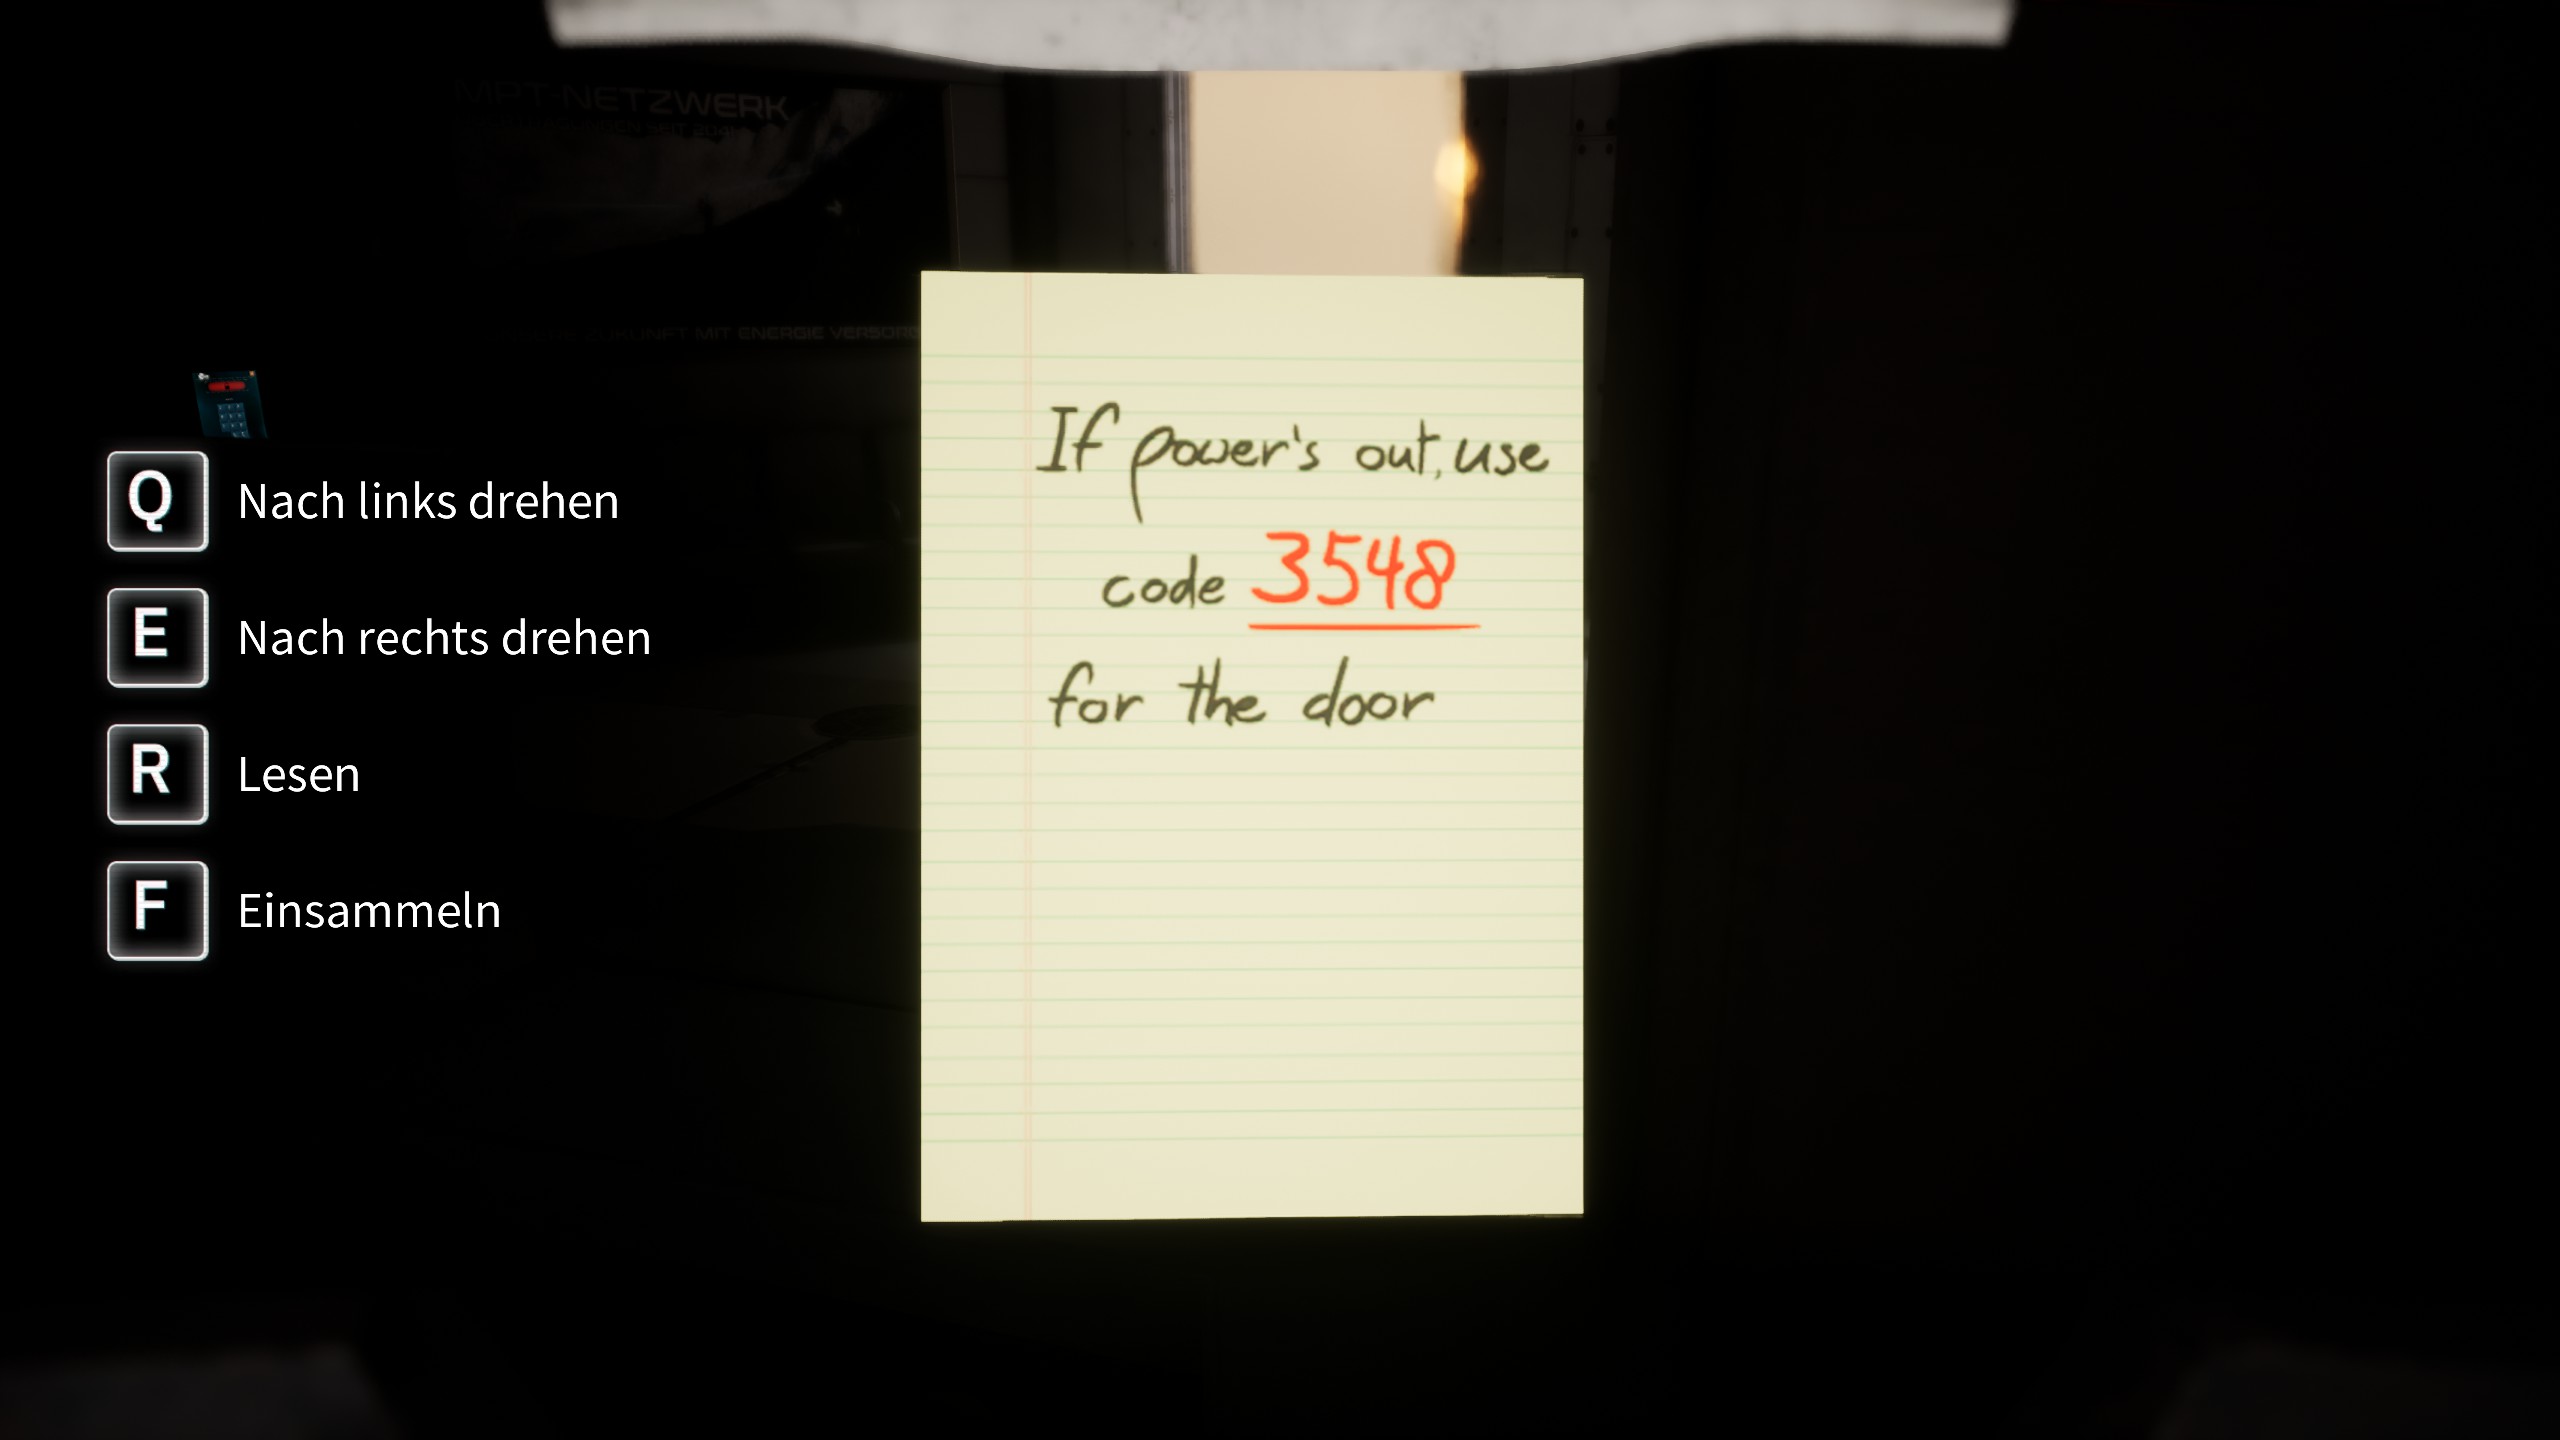 MPT-NETZWERK
ZUKUNFT MIT ENERGIE
Q Nach links drehen
E Nach rechts drehen
R Lesen
F Einsammeln
If power's out, use
code 3548
for the door